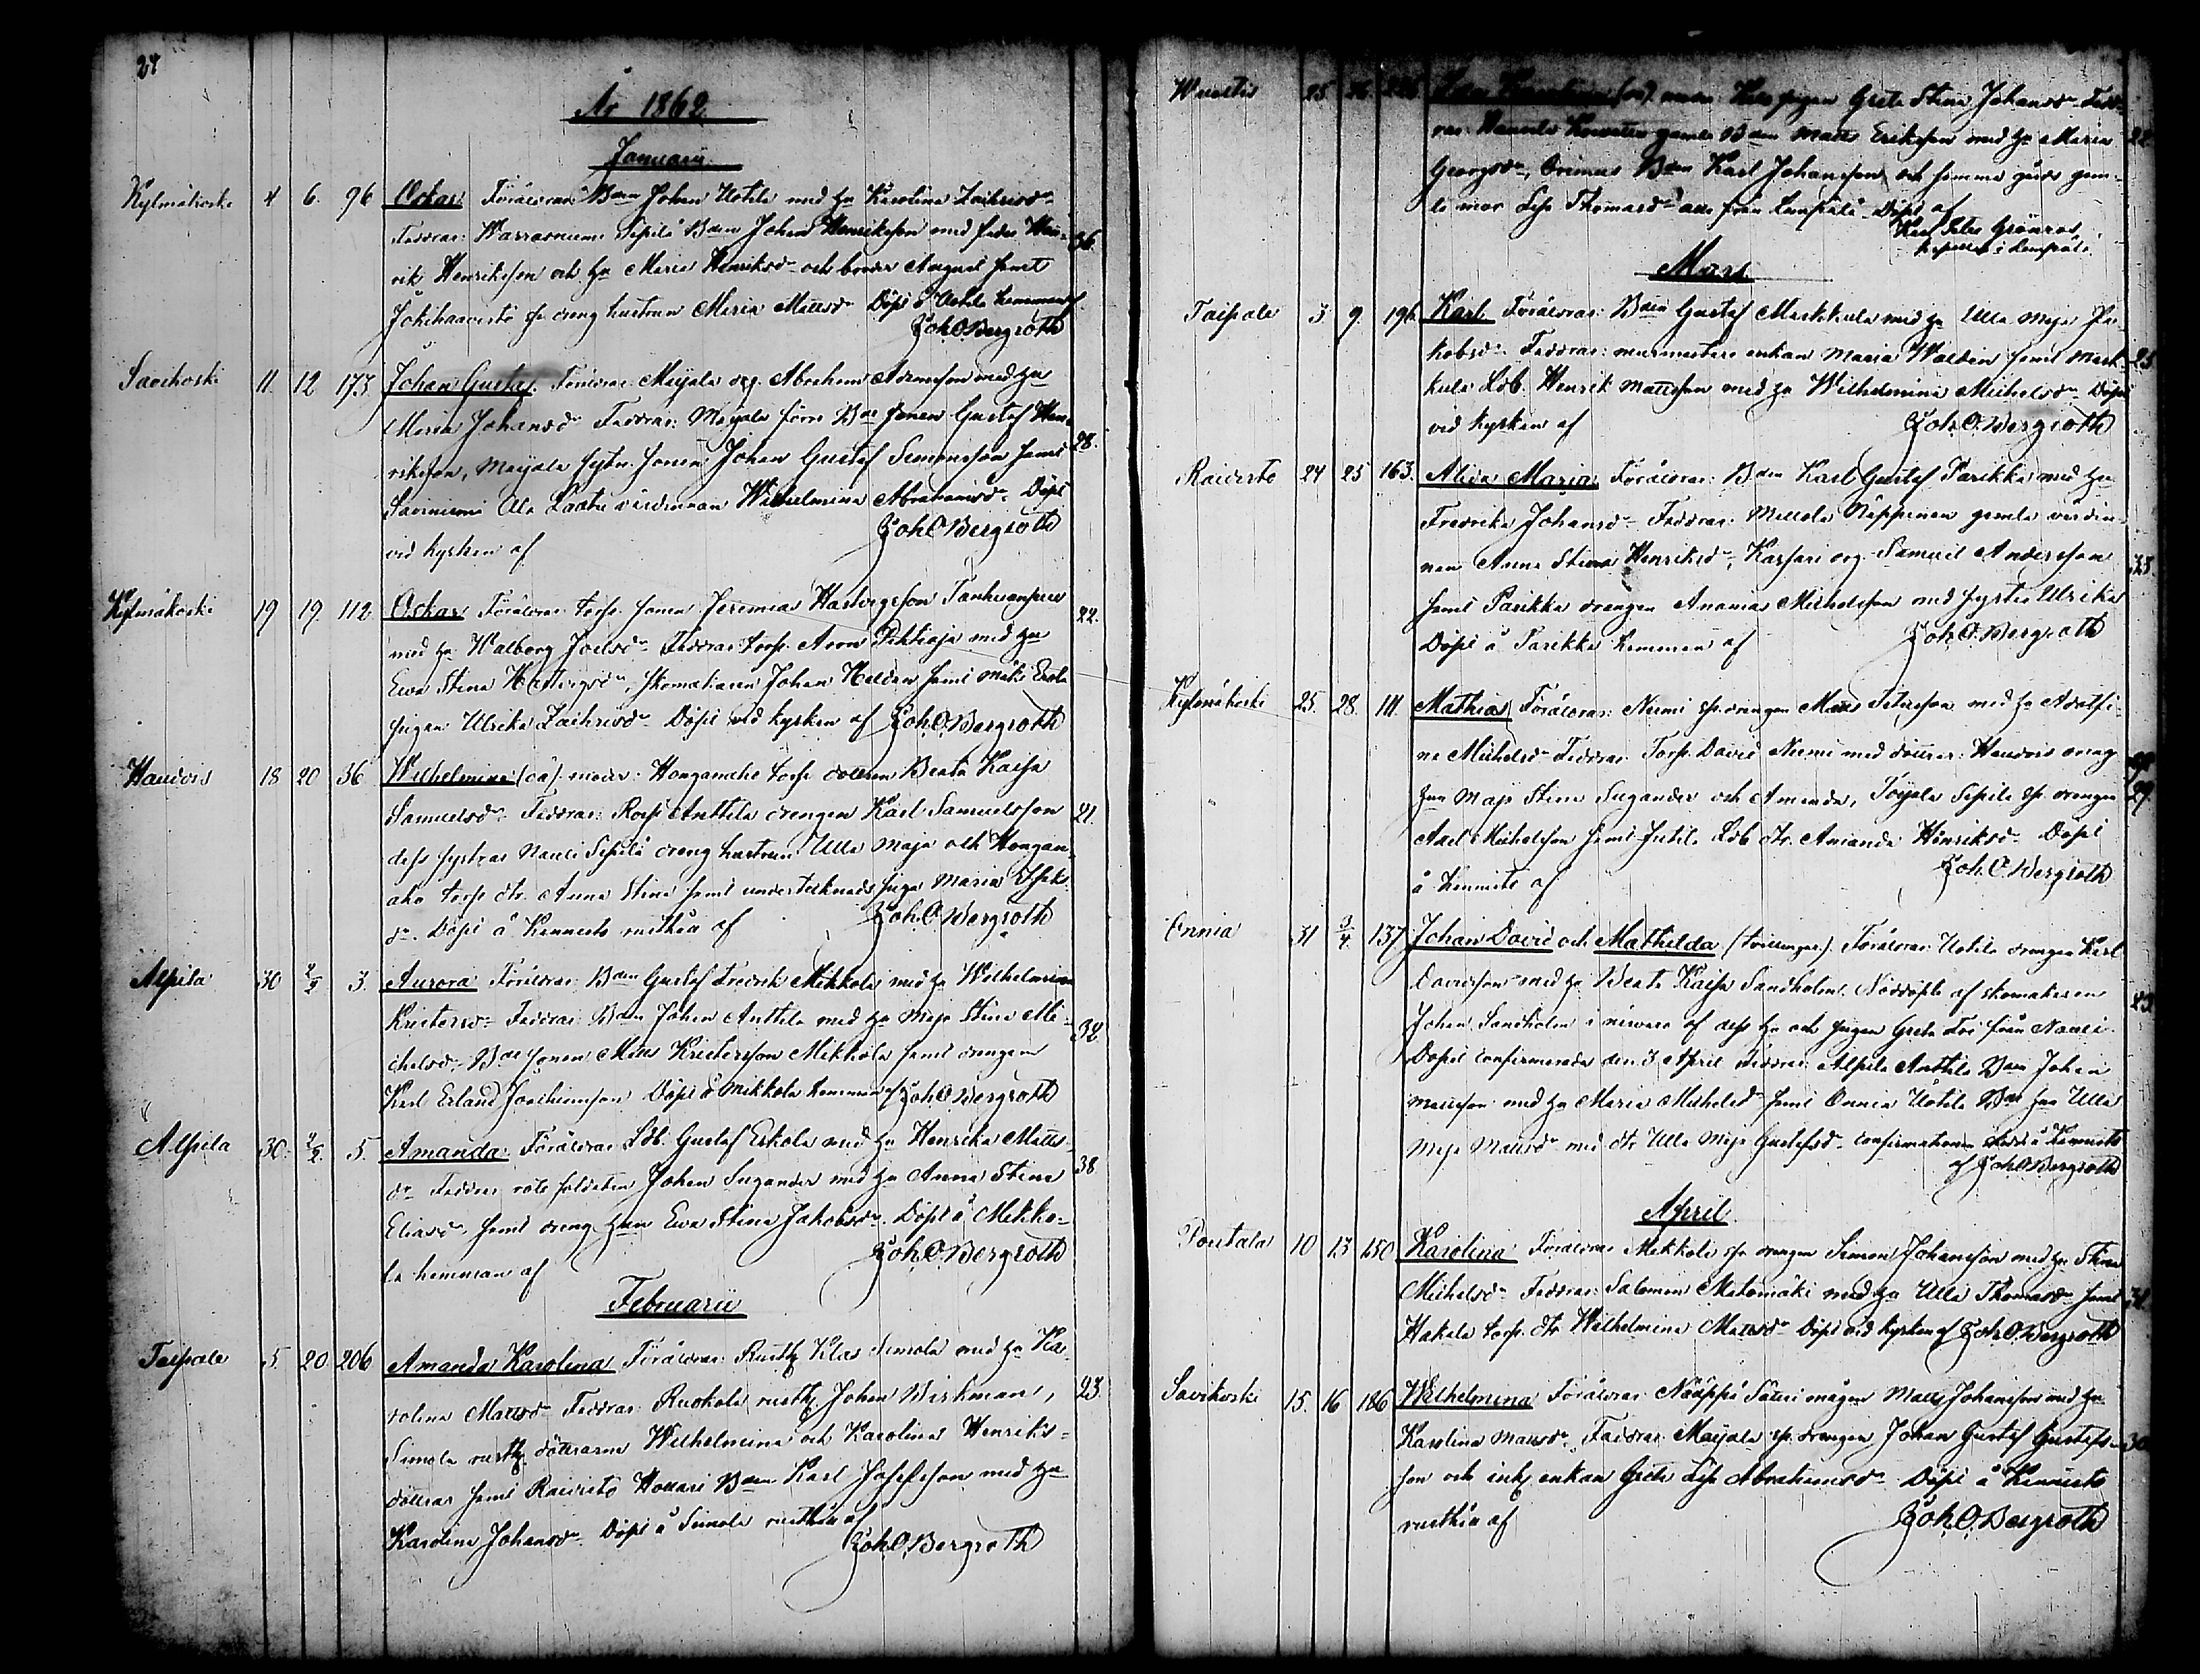 24
År 1862.
Januarii
Kylmäkoski 4 6. 96 Oskar Föräldrar: Bden Johan Uotila med hu Karolina Zachrisdr
Faddrar: Sepilä Bden Johan Henriksson med fader Hen- 36.
rik Henriksson och hu Maria Henriksdr och broder August samt
Jokihaavisto sp. dreng hustrun Maria Mattsdr Döpt å Uotila hemman af
Joh. O. Bergroth
Savikoski 11. 12 173 Johan Gustaf. Föräldrar Meijala drg. Abraham Adamsson med hu
Maria Johansdr Faddrar: Meijala förre Bde sonen Gustaf Hen- 28.
riksson, Meijala sytn. sonen Johan Gustaf Simonsson samt
Saviniemi Ala Laatu värdinnan Wilhelmina Abrahamsdr Döpt
vid kyrkan af Joh. O. Bergroth
Kylmäkoski 19 19. 112 Oskar Föräldrar torp. sonen Jeremias Hartvigsson Tanhuanpää 22.
med hu Walborg Joelsdr Faddrar torp. Aron med hu
Ewa Stina Hartvigsdr, skomakaren Johan samt Mäki Eerola
pigan Ulrika Zachrisdr Döpt vid kyrkan af Joh. O. Bergroth
Haudois 18 20 36 Wilhelmina (oä) moder: Honganaho torp. dottren Beata Kajsa
Samuelsdr Faddrar: Anttila drengen Karl Samuelsson 21.
dess systrar Nauli Sepilä dreng hustrun Ulla Maja och Hongan-
aho torp. dtr. Anna Stina samt undertecknads piga Maria
dr. Döpt å af Joh. O. Bergroth
Alpila 30 2/2 3. Aurora Föräldrar: Bden Gustaf Fredrik Mikkola med hu Wilhelmina
Kristersdr Faddrar: Bden Johan Anttila med hu Maja Stina Mi- 32
chelsdr, Bde sonen Matts Kristersson Mikkola samt drengen
Karl Erland Joachimsson Döpt å Mikkola hemman af Joh. O. Bergroth
Alpila 30. 2/2. 5. Amanda Föräldrar Ldb. Gustaf Eskola med hu Henrika Matts-
dr Faddrar rote soldaten Johan Sugander med hu Anna Stina 38
Eliasdr, samt dreng hun Ewa Stina Jakobsdr. Döpt å Mikko-
la hemman af Joh. O. Bergroth
Februarii
Taipale 5. 20 206 Amanda Karolina Föräldrar: Rusth. Klas Simola med hu Ka-
rolina Mattsdr Faddrar: Ruokola rusth. Johan Birkman, 23
Simola rusth. döttrarna Wilhelmina och Karolina Henriks-
döttrar samt Raivisto Hollari Bden Karl Josefsson med hu
Karolina Johansdr Döpt å Simola rusthåll af
Joh. O. Bergroth
25 26 (oä) moder pigan Greta Stina Johansdr Fadd-
rar: gamla Bden Matts Eriksson med hu Maria 22
Georgsdr, Bden Karl Johansson och samma gårds gam-
la mor Lisa Thomasdr alla från Lempälä Döpt af
Karl Peter Grönroos,
kapellan i Lempälä.
Mars
Taipale 3 9. 196. Karl Föräldrar: Bden Gustaf Markkula med hu Ulla Maja Ja-
kobsdr Faddrar: murmästare enkan Maria Waldén samt Mark- 25
kula Ldb. Henrik Mattsson med hu Wilhelmina Michelsdr Döpt
vid kyrkan af Joh. O. Bergroth
Raivisto 24 25 163. Alida Maria Föräldrar: Bden Karl Gustaf Parikka med hu
Fredrika Johansdr Faddrar: Mellola Näppinen gamla värdin-
nan Anna Stina Henriksdr, Kassari drg Samuel Andersson 35.
samt Parikka drengen Ananias Michelsson med syster Ulrika
Döpt å Parikka hemman af Joh. O. Bergroth
Kylmäkoski 25. 28. 111. Mathias Föräldrar: Niemi sp. drengen Matts Petersson med hu Adolfi-
na Michelsdr Faddrar: Torp. David Niemi med dotter: Haudois dreng
hun Maja Stina Sugander och Amanda, Toijala Sepilä sp. drengen 29.
Axel Michelsson samt Ldb dtr. Amanda Henriksdr Döpt
å hemmets af Joh. O. Bergroth
Onnia 31 3/4. 137 Johan David och Mathilda (tvillingar). Föräldrar: Uotila drengen Karl
Davidsson med hu Beata Kajsa Sandholm. Nöddöpte af skomakaren
Johan Sandholm i närvaro af dess hu och pigan Greta från Nauli 23
Dopet confirmerades den 3 April Faddrar: Alpila Anttila Bden Johan
Mattsson med hu Maria Michelsdr samt Onnia Uotila Bde hun Ulla
Maja Mattsdr med dtr Ulla Maja Gustafsdr. confirmationen skedd å
af Joh. O. Bergroth
April
Pontala 10 13 150 Karolina Föräldrar Mikkola sp. drengen Simon Johansson med hu Stina
Michelsdr Faddrar: Salomon Matomäki med hu Ulla Thomasdr samt 31.
Hakala torp. dtr Wilhelmina Mattsdr Döpt vid kyrkan af Joh. O. Bergroth
Savikoski 15. 16 186 Wilhelmina Föräldrar Näppi Säteri mågen Matts Johansson med hu
Karolina Mattsdr. Faddrar Meijala sp. drengen Johan Gustaf Gustafs-
son och inh. enkan Greta Lisa Abrahamsdr Döpt å
rusthåll af Joh. O. Bergroth